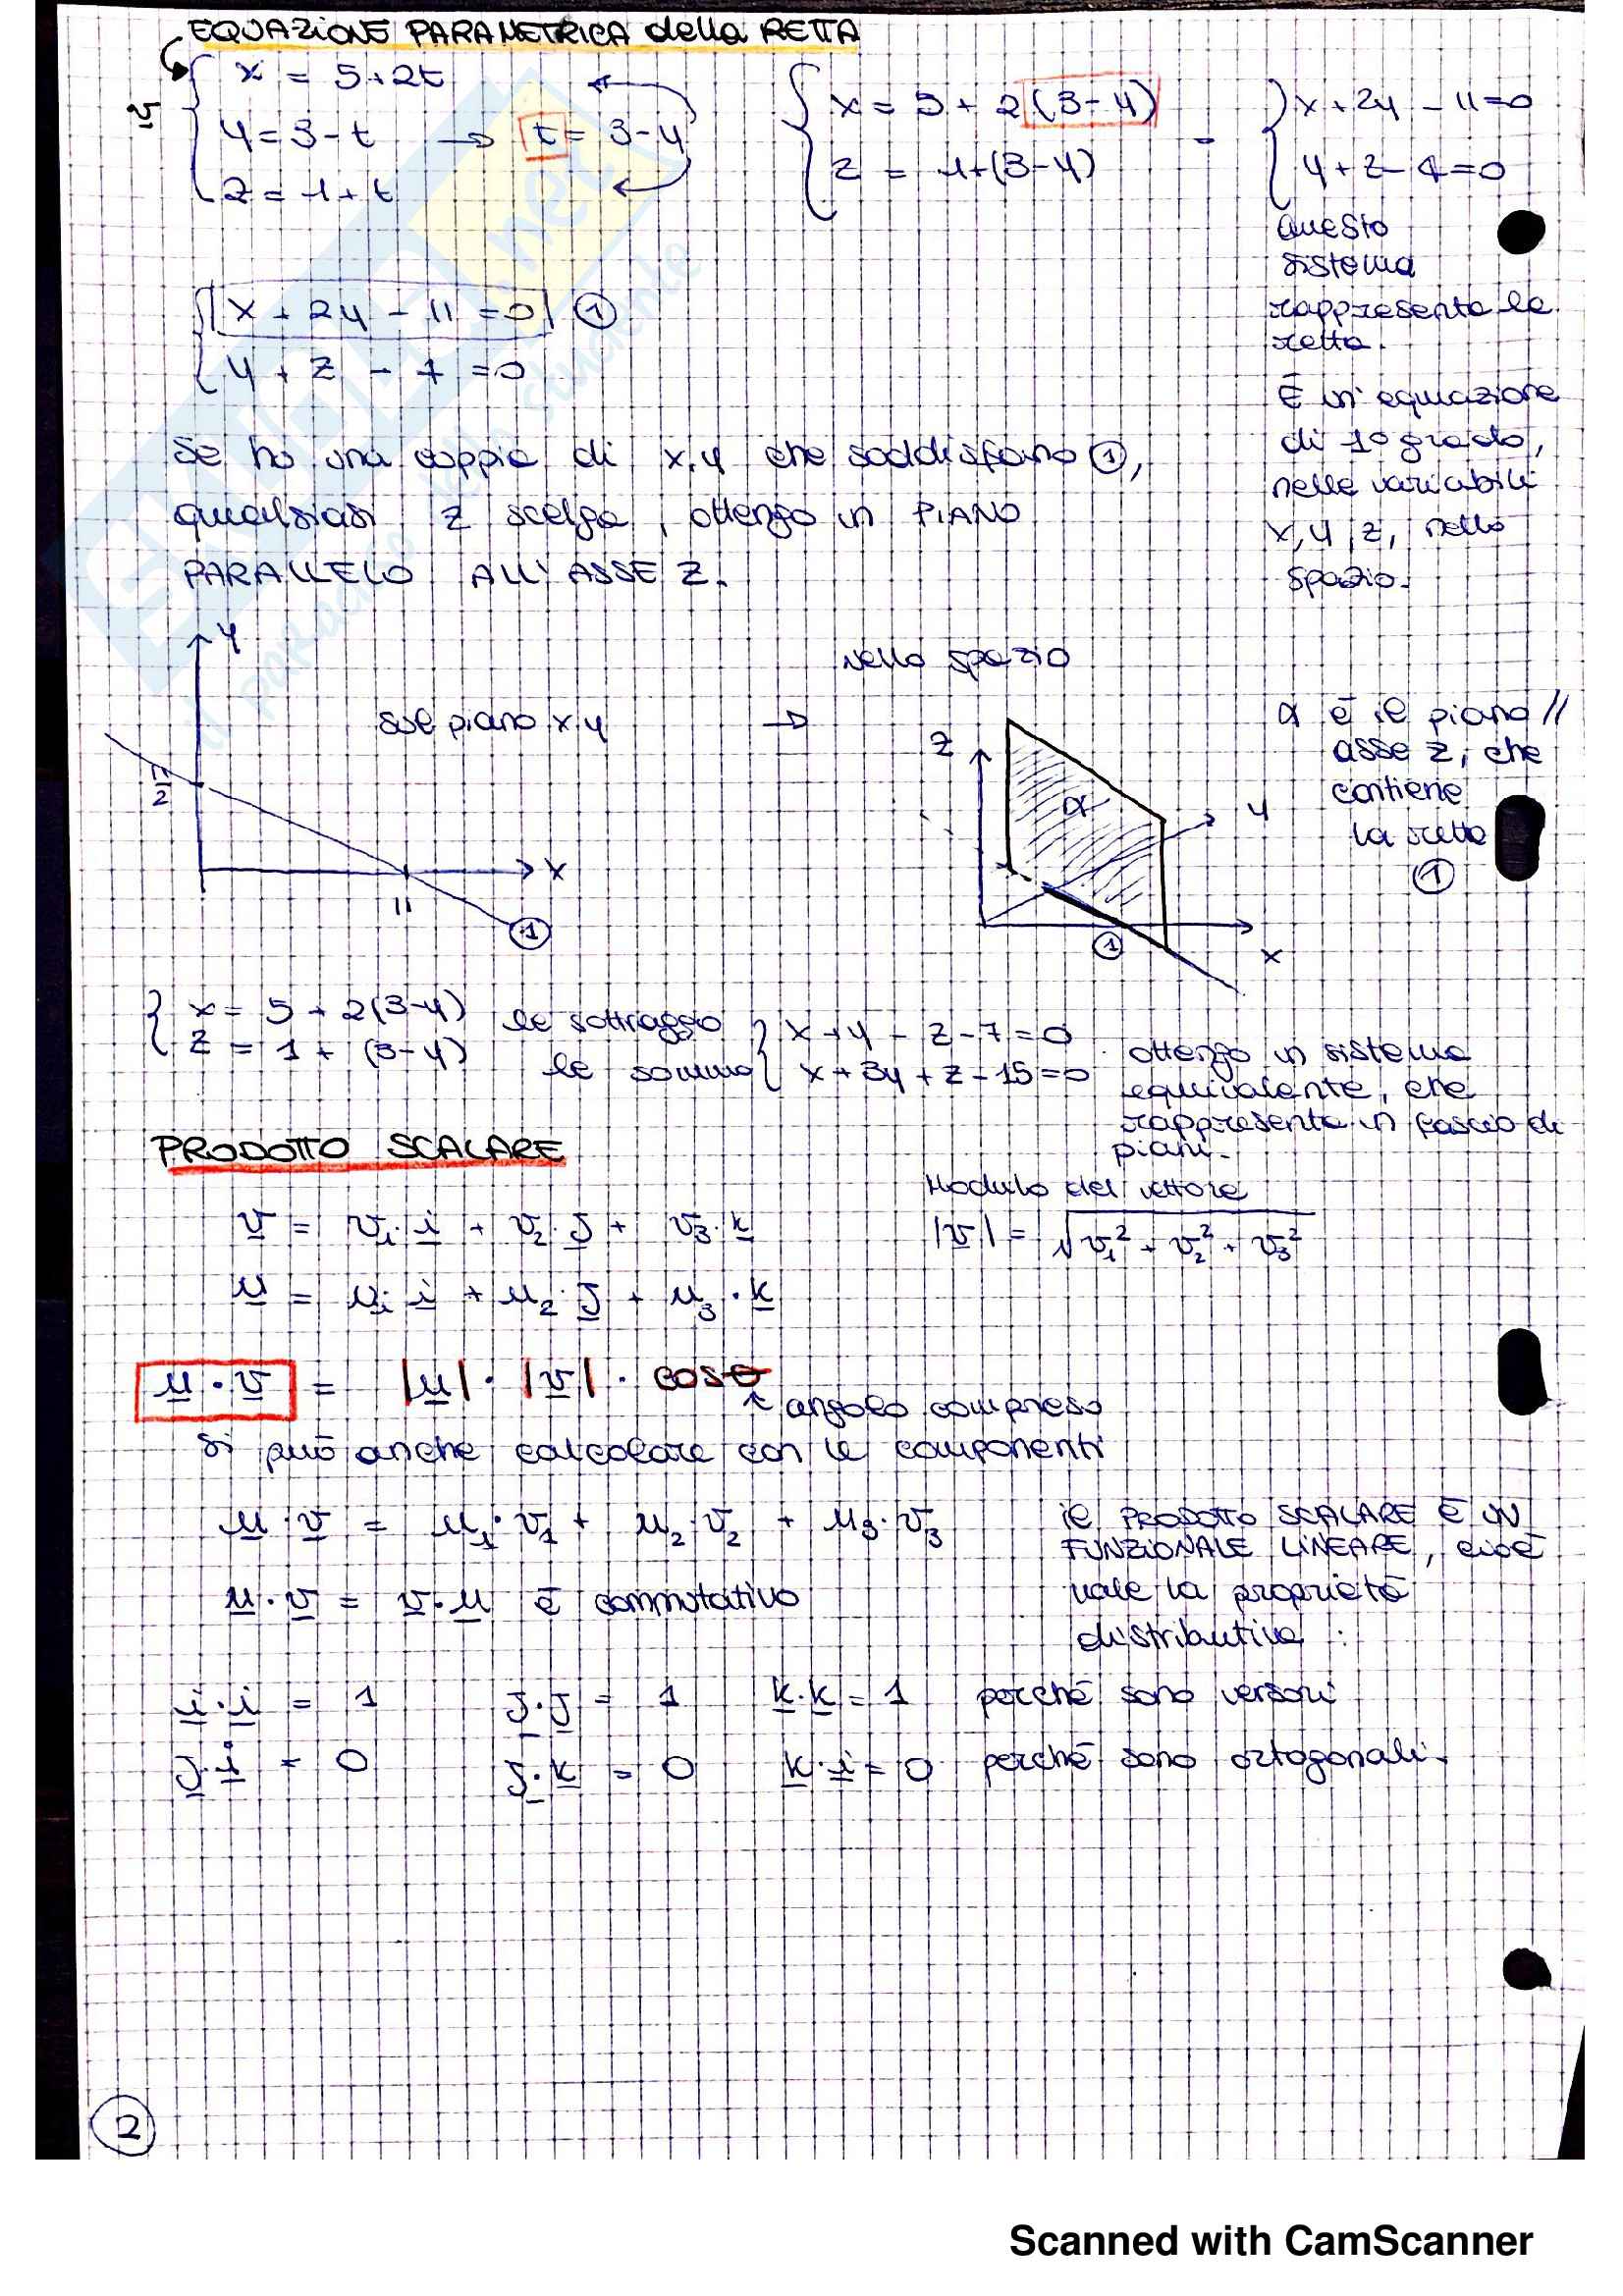 EQUAZIONE PARAMETRICA della RETTA
v { x = 5+2t
y = 3-t → t = 3-y
z = 1+t
{ x = 5 + 2(3-y)
z = 1+(3-y)
= { x+2y - 11=0
y+z-4=0
questo
sistema
rappresenta la
retta.
È un'equazione
di 1° grado,
nelle variabili
x, y, z, nello
spazio.
{ x + 2y - 11 = 0 ①
y + z - 4 = 0
Se ho una coppia di x,y che soddisfano ①,
qualsiasi z scelga, ottengo un PIANO
PARALLELO ALL'ASSE Z.
y
sul piano x,y →
11/2
x
11
①
nello spazio
z
α
y
①
x
α è il piano //
asse z, che
contiene
la retta
①
{ x = 5 + 2(3-y)
z = 1 + (3-y)
le sottraggo
le sommo
{ x + y - z - 7 = 0
x + 3y + z - 15 = 0
ottengo un sistema
equivalente, che
rappresenta un fascio di
piani.
PRODOTTO SCALARE
Modulo del vettore
v = v₁·i + v₂·j + v₃·k
|v| = √v₁² + v₂² + v₃²
u = u₁·i + u₂·j + u₃·k
u·v = |u|·|v|·cosθ
↑ angolo compreso
si può anche calcolare con le componenti
u·v = u₁·v₁ + u₂·v₂ + u₃·v₃
u·v = v·u è commutativo
il PRODOTTO SCALARE È UN
FUNZIONALE LINEARE, cioè
vale la proprietà
distributiva :
i·i = 1 j·j = 1 k·k = 1 perché sono versori
j·i = 0 j·k = 0 k·i = 0 perché sono ortogonali.
2
Scanned with CamScanner